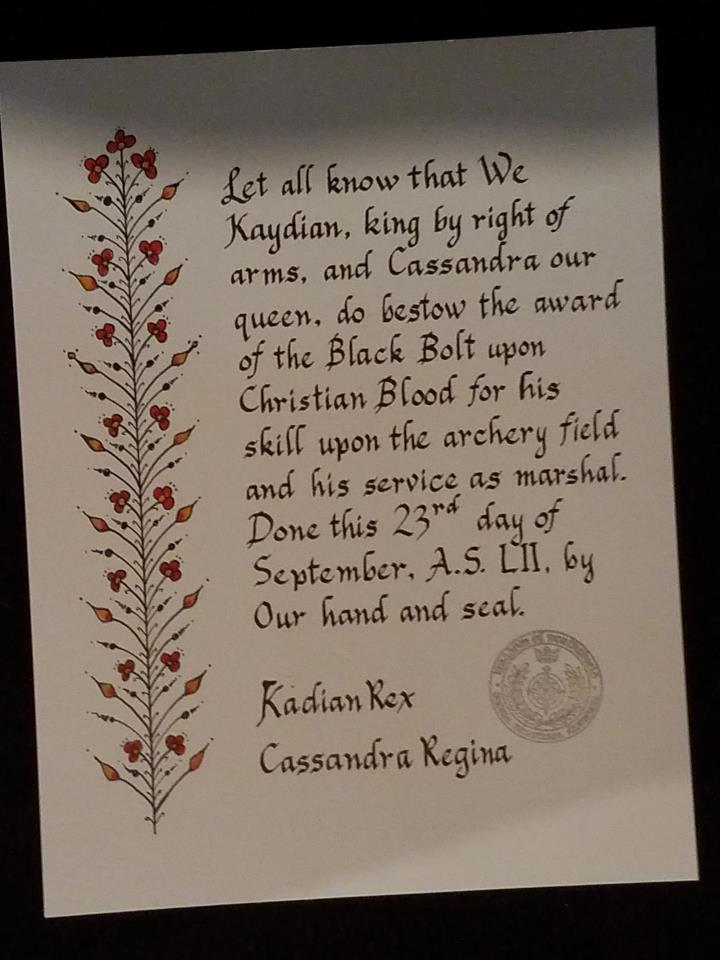 Let all know that We
Kaydian, king by right of
arms, and Cassandra our
queen, do bestow the award
of the Black Bolt upon
Christian Blood for his
skill upon the archery field
and his service as marshal.
Done this 23rd day of
September, A.S. LII, by
Our hand and seal.
Kadian Rex
Cassandra Regina